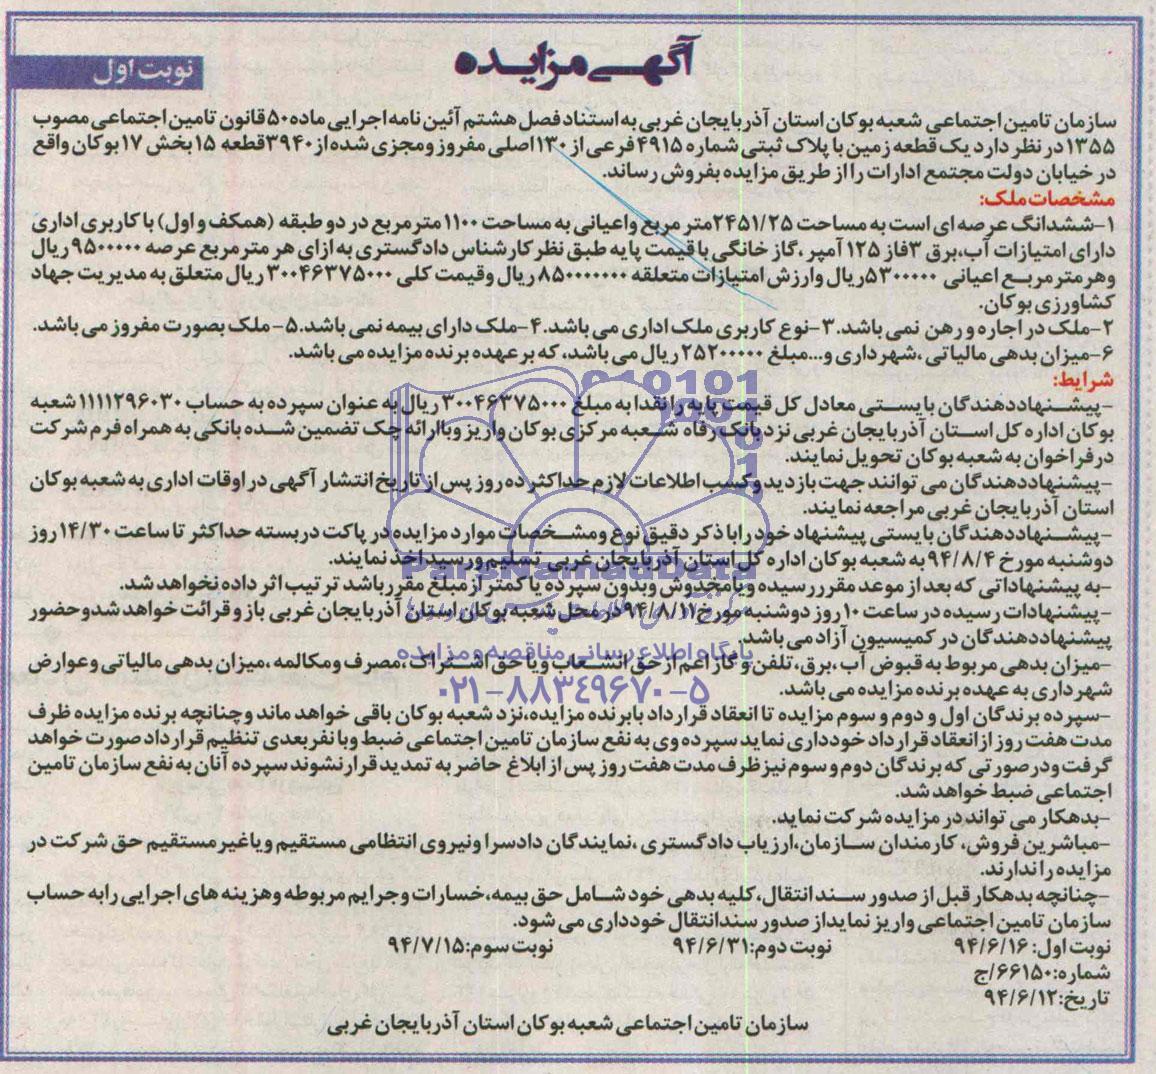 آگهی مزایده
نوبت اول
سازمان تامین اجتماعی شعبه بوکان استان آذربایجان غربی به استناد فصل هشتم آئین نامه اجرایی ماده ۵۰ قانون تامین اجتماعی مصوب
۱۳۵۵ در نظر دارد یک قطعه زمین با پلاک ثبتی شماره ۴۹۱۵ فرعی از ۱۳۰ اصلی مفروز ومجزی شده از ۳۹۴۰ قطعه ۱۵ بخش ۱۷ بوکان واقع
در خیابان دولت مجتمع ادارات را از طریق مزایده بفروش رساند.
مشخصات ملک:
۱-ششدانگ عرصه ای است به مساحت ۲۴۵۱/۲۵ متر مربع واعیانی به مساحت ۱۱۰۰ متر مربع در دو طبقه (همکف و اول) با کاربری اداری
دارای امتیازات آب،برق ۳فاز ۱۲۵ آمپر ،گاز خانگی با قیمت پایه طبق نظر کارشناس دادگستری به ازای هر متر مربع عرصه ۹۵۰۰۰۰۰ ریال
وهر متر مربع اعیانی ۵۳۰۰۰۰۰ ریال وارزش امتیازات متعلقه ۸۵۰۰۰۰۰۰۰ ریال وقیمت کلی ۳۰۰۴۶۳۷۵۰۰۰ ریال متعلق به مدیریت جهاد
کشاورزی بوکان.
۲-ملک در اجاره و رهن نمی باشد. ۳-نوع کاربری ملک اداری می باشد. ۴-ملک دارای بیمه نمی باشد. ۵- ملک بصورت مفروز می باشد.
۶-میزان بدهی مالیاتی ،شهرداری و...مبلغ ۲۵۲۰۰۰۰۰ ریال می باشد، که بر عهده برنده مزایده می باشد.
شرایط:
-پیشنهاددهندگان بایستی معادل کل قیمت پایه را نقدا به مبلغ ۳۰۰۴۶۳۷۵۰۰۰ ریال به عنوان سپرده به حساب ۱۱۱۱۲۹۶۰۳۰ شعبه
بوکان اداره کل استان آذربایجان غربی نزد بانک رفاه شعبه مرکزی بوکان واریز وباارائه چک تضمین شده بانکی به همراه فرم شرکت
درفراخوان به شعبه بوکان تحویل نمایند.
-پیشنهاددهندگان می توانند جهت بازدید وکسب اطلاعات لازم حداکثر ده روز پس از تاریخ انتشار آگهی در اوقات اداری به شعبه بوکان
استان آذربایجان غربی مراجعه نمایند.
-پیشنهاددهندگان بایستی پیشنهاد خود رابا ذکر دقیق نوع ومشخصات موارد مزایده در پاکت دربسته حداکثر تا ساعت ۱۴/۳۰ روز
دوشنبه مورخ ۹۴/۸/۴ به شعبه بوکان اداره کل استان آذربایجان غربی تسلیم ورسید اخذ نمایند.
-به پیشنهاداتی که بعد از موعد مقرر رسیده ویا مخدوش وبدون سپرده یا کمتر از مبلغ مقررباشد ترتیب اثر داده نخواهد شد.
-پیشنهادات رسیده در ساعت ۱۰ روز دوشنبه مورخ ۹۴/۸/۱۱ در محل شعبه بوکان استان آذربایجان غربی باز و قرائت خواهد شد وحضور
پیشنهاددهندگان در کمیسیون آزاد می باشد.
-میزان بدهی مربوط به قبوض آب،برق،تلفن و گاز اعم از حق انشعاب ویا حق اشتراک،مصرف ومکالمه ،میزان بدهی مالیاتی وعوارض
شهرداری به عهده برنده مزایده می باشد.
-سپرده برندگان اول و دوم و سوم مزایده تا انعقاد قرارداد بابرنده مزایده،نزد شعبه بوکان باقی خواهد ماند وچنانچه برنده مزایده ظرف
مدت هفت روز از انعقاد قرارداد خودداری نماید سپرده وی به نفع سازمان تامین اجتماعی ضبط وبا نفربعدی تنظیم قرارداد صورت خواهد
گرفت ودر صورتی که برندگان دوم و سوم نیز ظرف مدت هفت روز پس از ابلاغ حاضر به تمدید قرار نشوند سپرده آنان به نفع سازمان تامین
اجتماعی ضبط خواهد شد.
-بدهکار می تواند در مزایده شرکت نماید.
-مباشرین فروش، کارمندان سازمان،ارزیاب دادگستری ،نمایندگان دادسرا ونیروی انتظامی مستقیم ویاغیرمستقیم حق شرکت در
مزایده را ندارند.
-چنانچه بدهکار قبل از صدور سند انتقال، کلیه بدهی خود شامل حق بیمه، خسارات وجرایم مربوطه وهزینه های اجرایی رابه حساب
سازمان تامین اجتماعی واریز نماید از صدور سند انتقال خودداری می شود.
نوبت اول: ۹۴/۶/۱۶ نوبت دوم: ۹۴/۶/۳۱ نوبت سوم: ۹۴/۷/۱۵
شماره: ۶۶۱۵۰/ج
تاریخ: ۹۴/۶/۱۲
سازمان تامین اجتماعی شعبه بوکان استان آذربایجان غربی
ParsNamadData
پایگاه اطلاع رسانی مناقصه و مزایده
۰۲۱-۸۸۳۴۹۶۷۰-۵